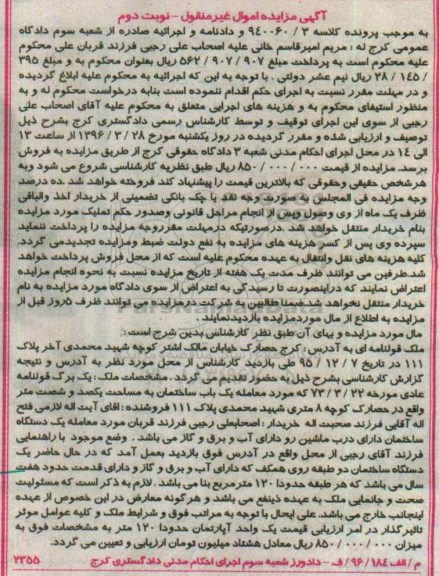 آگهی مزایده اموال غیرمنقول - نوبت دوم
به موجب پرونده کلاسه ۳ / ۹۴۰۰۶۰ و دادنامه و اجرائیه صادره از شعبه سوم دادگاه
عمومی کرج له : مریم امیرقاسم خانی علیه اصحاب علی رجبی فرزند قربان علی محکوم
علیه محکوم است به پرداخت مبلغ ۹۰۷ / ۹۰۷ / ۵۶۲ ریال بعنوان محکوم به و مبلغ ۳۹۵
/ ۱۴۵ / ۲۸ ریال نیم عشر دولتی . با توجه به این که اجرائیه به محکوم علیه ابلاغ گردیده
و در مهلت مقرر نسبت به اجرای حکم اقدام ننموده است بنابه درخواست محکوم له و به
منظور استیفای محکوم به و هزینه های اجرایی متعلق به محکوم علیه آقای اصحاب علی
رجبی از سوی این اجرای توقیف و توسط کارشناس رسمی دادگستری کرج بشرح ذیل
توصیف و ارزیابی شده و مقرر گردیده در روز یکشنبه مورخ ۲۸ / ۳ / ۱۳۹۶ از ساعت ۱۳
الی ۱۴ در محل اجرای احکام مدنی شعبه ۳ دادگاه حقوقی کرج از طریق مزایده به فروش
برسد. مزایده از قیمت ۰۰۰ / ۰۰۰ / ۸۵۰ ریال طبق نظریه کارشناسی شروع می شود وبه
هرشخص حقیقی وحقوقی که بالاترین قیمت را پیشنهاد کند فروخته خواهد شد .ده درصد
وجه مزایده فی المجلس به صورت وجه نقد یا چک بانکی تضمینی از خریدار اخذ والباقی
ظرف یک ماه از وی وصول وپس از انجام مراحل قانونی وصدور حکم تملیک مورد مزایده
بنام خریدار منتقل خواهد شد .درصورتیکه درمهلت مقرروجه مزایده را پرداخت ننماید
سپرده وی پس از کسر هزینه های مزایده به نفع دولت ضبط ومزایده تجدیدمی گردد.
کلیه هزینه های نقل وانتقال به عهده محکوم علیه است که از محل فروش پرداخت خواهد
شد.طرفین می توانند ظرف مدت یک هفته از تاریخ مزایده نسبت به نحوه انجام مزایده
اعتراض نمایند که دراینصورت تا رسیدگی به اعتراض از سوی دادگاه مورد مزایده به نام
خریدار منتقل نخواهد شد.ضمنا طالبین به شرکت درمزایده می توانند ظرف ۵روز قبل از
مزایده به اطلاع از مال موردمزایده بازدیدنمایند .
مال مورد مزایده و بهای آن طبق نظر کارشناس بدین شرح است:
ملک قولنامه ای به آدرس: کرج حصارک خیابان مالک اشتر کوچه شهید محمدی آخر پلاک
۱۱۱ در تاریخ ۷ / ۱۲ / ۹۵ طی بازدید کارشناس از محل مورد نظر به آدرس و نتیجه
گزارش کارشناسی بشرح ذیل به حضور تقدیم می گردد. مشخصات ملک : یک برگ قولنامه
عادی مورخه ۲۲ / ۳ / ۷۳ که مورد معامله یک باب ساختمان به مساحت یکصد و شصت متر
واقع در حصارک کوچه ۸ متری شهید محمدی پلاک ۱۱۱ فروشنده : آقای آیت اله لازمی فتح
اله آقایی فرزند صحبت اله خریدار : اصحابعلی رجبی فرزند قربان مورد معامله یک دستگاه
ساختمان دارای درب ماشین رو دارای آب و برق و گاز می باشد . وضع موجود با راهنمایی
فرزند آقای رجبی از محل واقع در آدرس فوق بازدید بعمل آمد که در حال حاضر یک
دستگاه ساختمان دو طبقه روی همکف که دارای آب و برق و گاز و دارای قدمت حدود هفت
سال می باشد که هر طبقه حدودا ۱۲۰ مترمربع بنا می باشد . لازم به ذکر است که مسئولیت
صحت و جانمایی ملک به عهده ذینفع می باشد و هرگونه معارض در این خصوص از عهده
اینجانب خارج می باشد. علی ایحال با توجه به مراتب فوق و شرایط ملک و کلیه عوامل موثر
تاثیرگذار در امر ارزیابی قیمت یک واحد آپارتمان حدودا ۱۲۰ متر به مشخصات فوق به
میزان ۰۰۰ / ۰۰۰ / ۸۵۰ ریال معادل هشتاد میلیون تومان ارزیابی و تعیین می گردد.
م / الف ۱۸۴ / ۹۶ / ف - دادورز شعبه سوم اجرای احکام مدنی دادگستری کرج ۲۳۵۵